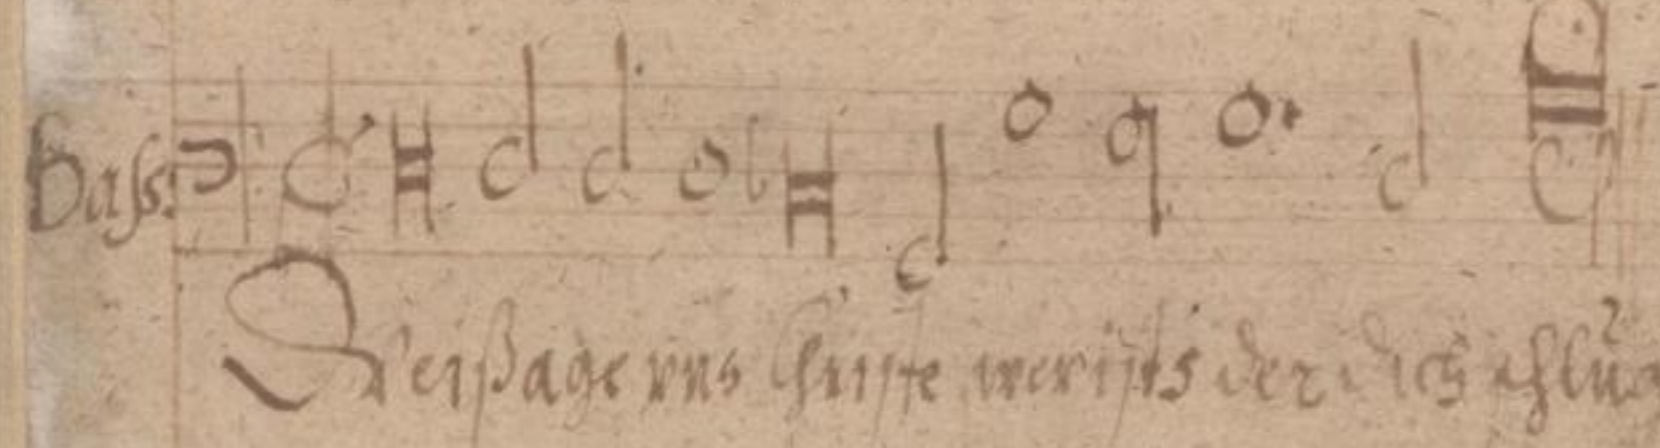 Bass:
Weissage vns Christe wer ists der dich schlug